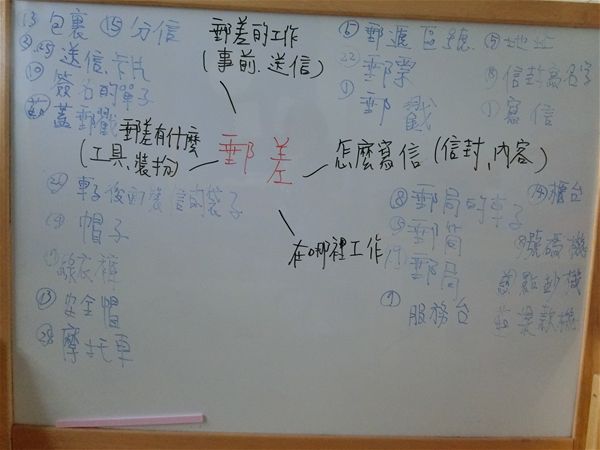 ⑬ 包裹 ⑮ 分信
送信、卡片
⑩ 簽名的單子
蓋郵戳
郵差的工作
(事前、送信)
⑥ 郵遞區號
㉒ 郵票
① 郵戳
⑤ 地址
信封寫名字
① 寫信
郵差有什麼
(工具、裝扮)
郵差
怎麼寫信 (信封、內容)
在哪裡工作
車子後面裝信的袋子
帽子
綠衣褲
⑬ 安全帽
摩托車
⑧ 郵局的車子
⑮ 郵筒
郵局
⑨ 服務台
櫃台
號碼機
點鈔機
提款機